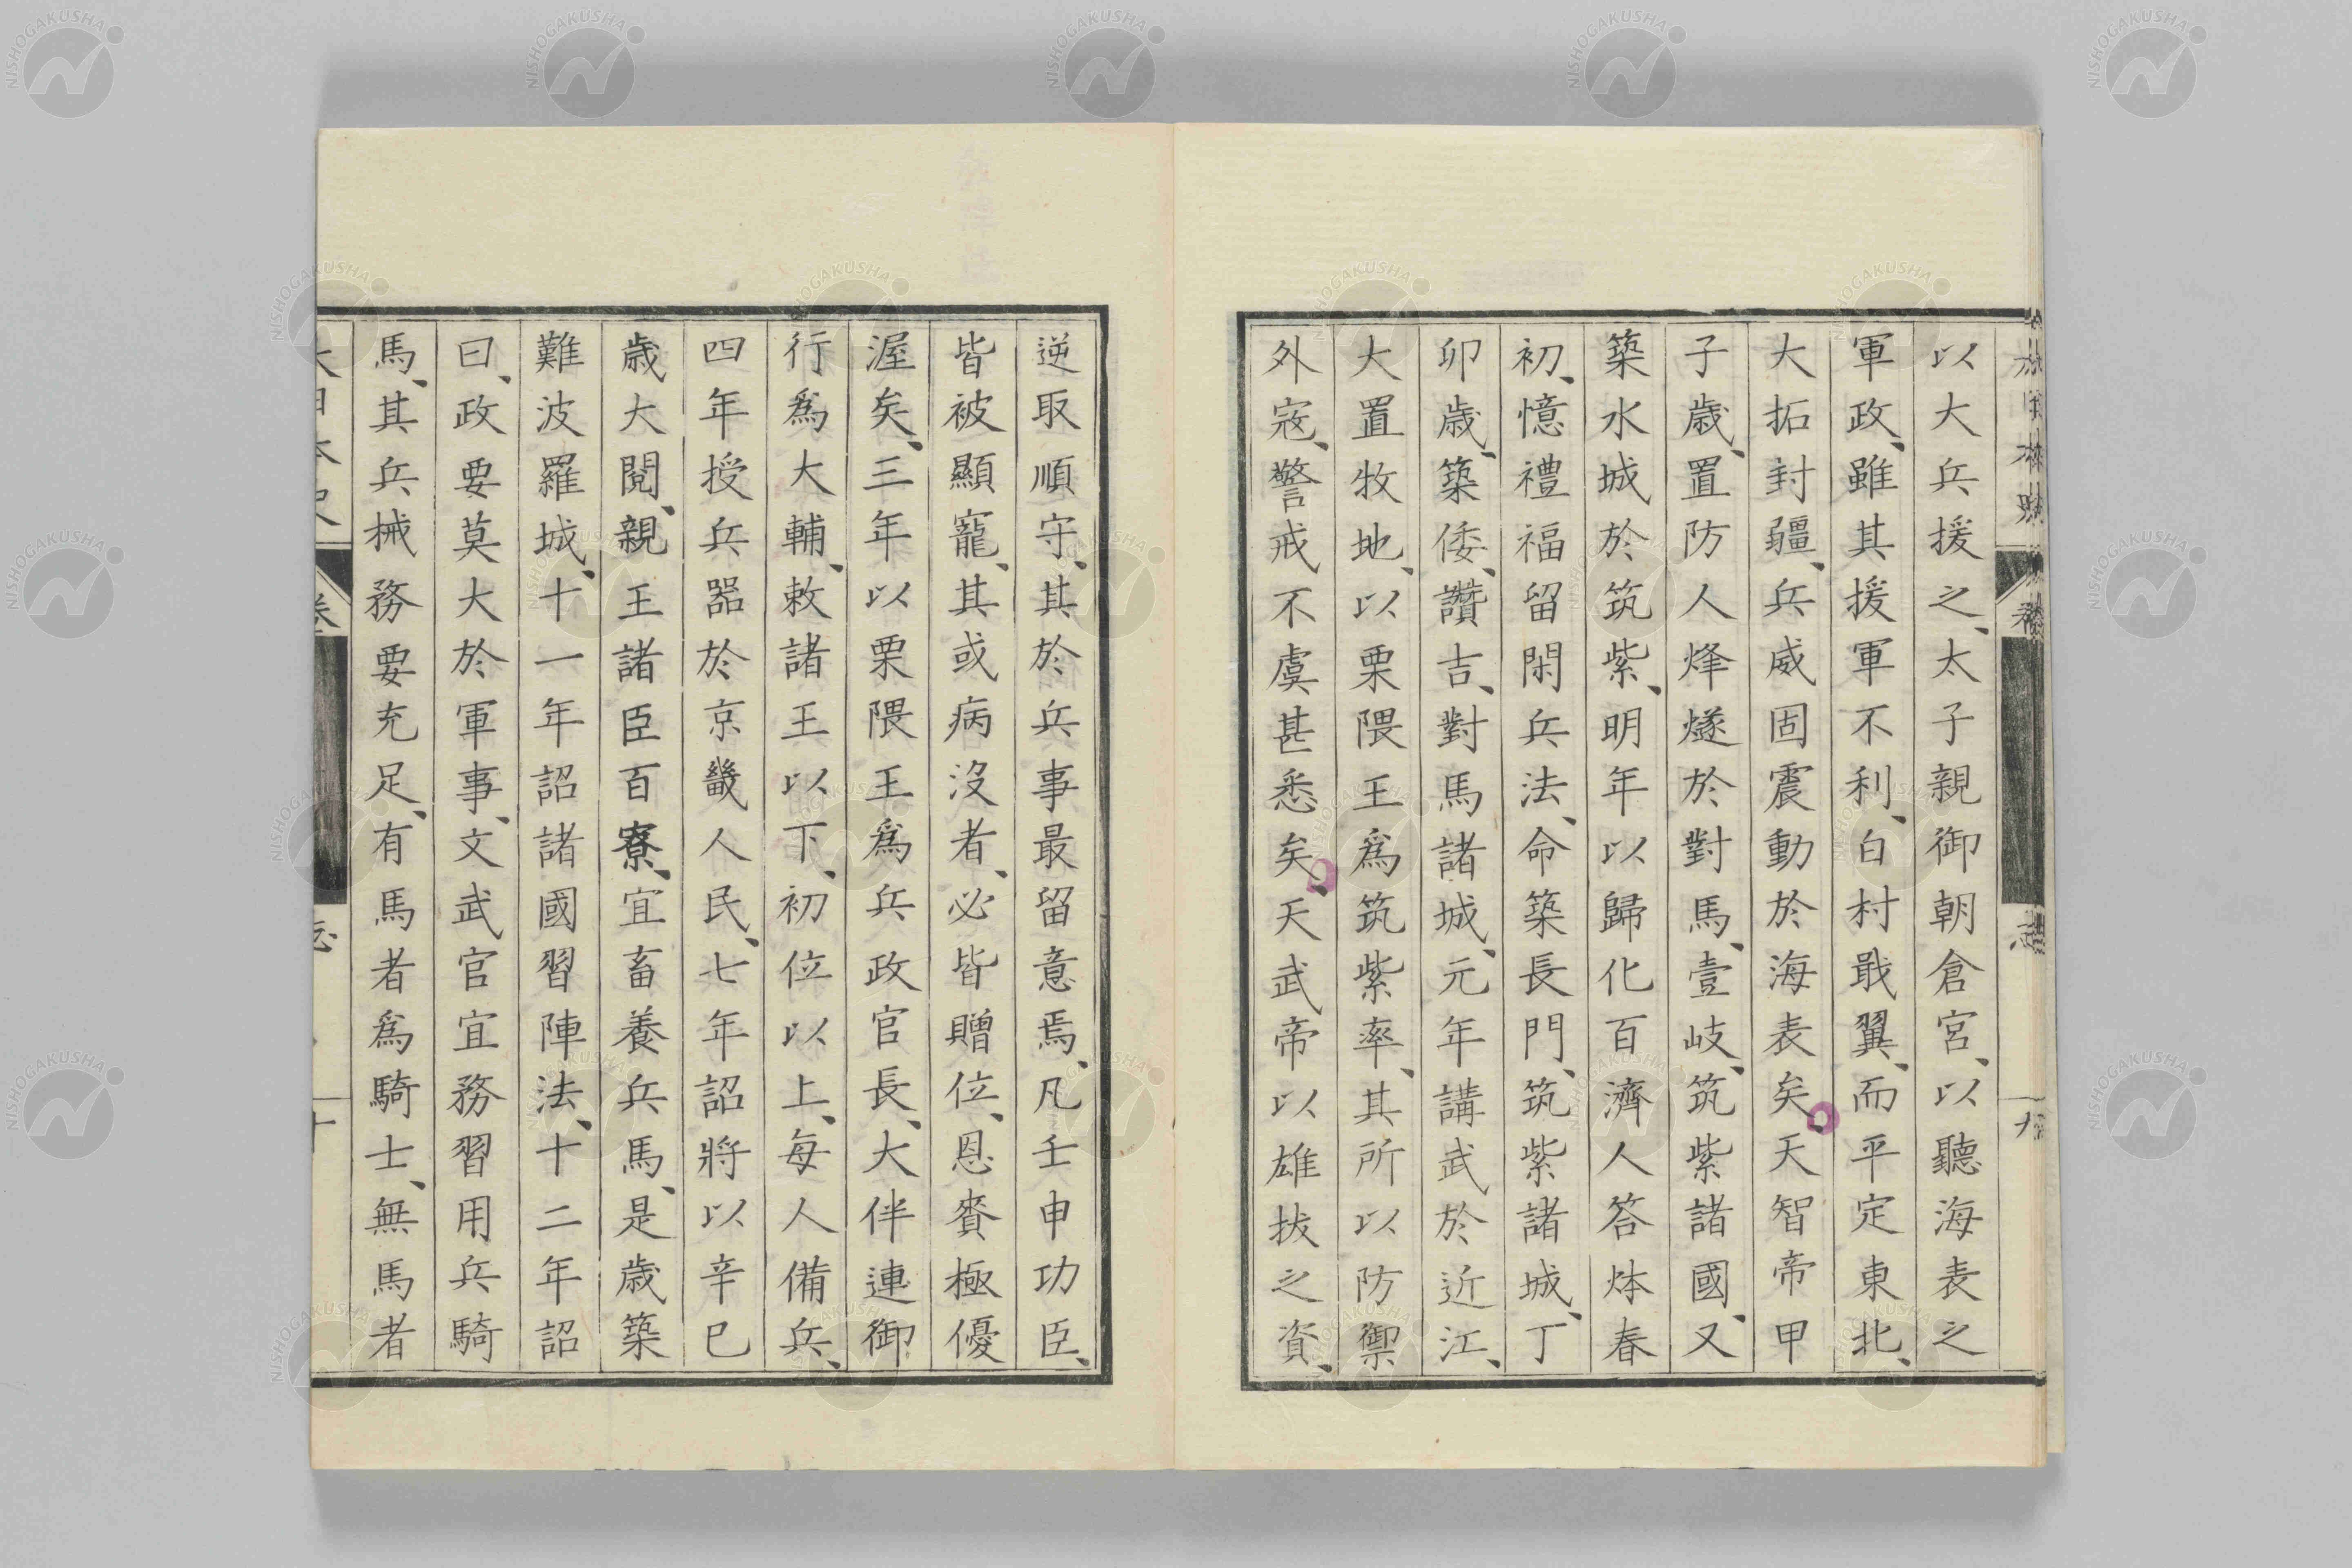 以大兵援之、太子親御朝倉宮、以聽海表之
軍政、雖其援軍不利、白村戰翼、而平定東北、
大拓封疆、兵威固震動於海表矣、天智帝甲
子歳、置防人烽燧於對馬、壹岐、筑紫諸國、又
築水城於筑紫、明年以歸化百濟人答㶱春
初、憶禮福留閑兵法、命築長門、筑紫諸城、丁
卯歳、築倭、讚吉、對馬諸城、元年講武於近江、
大置牧地、以栗隈王爲筑紫率、其所以防禦
外寇、警戒不虞甚悉矣、天武帝以雄拔之資、
逆取順守、其於兵事最留意焉、凡壬申功臣、
皆被顯寵、其或病沒者、必皆贈位、恩賚極優
渥矣、三年以栗隈王爲兵政官長、大伴連御
行爲大輔、敕諸王以下、初位以上、每人備兵、
四年授兵器於京畿人民、七年詔將以辛巳
歳大閱、親王諸臣百寮、宜畜養兵馬、是歳築
難波羅城、十一年詔諸國習陣法、十二年詔
曰、政要莫大於軍事、文武官宜務習用兵騎
馬、其兵械務要充足、有馬者爲騎士、無馬者